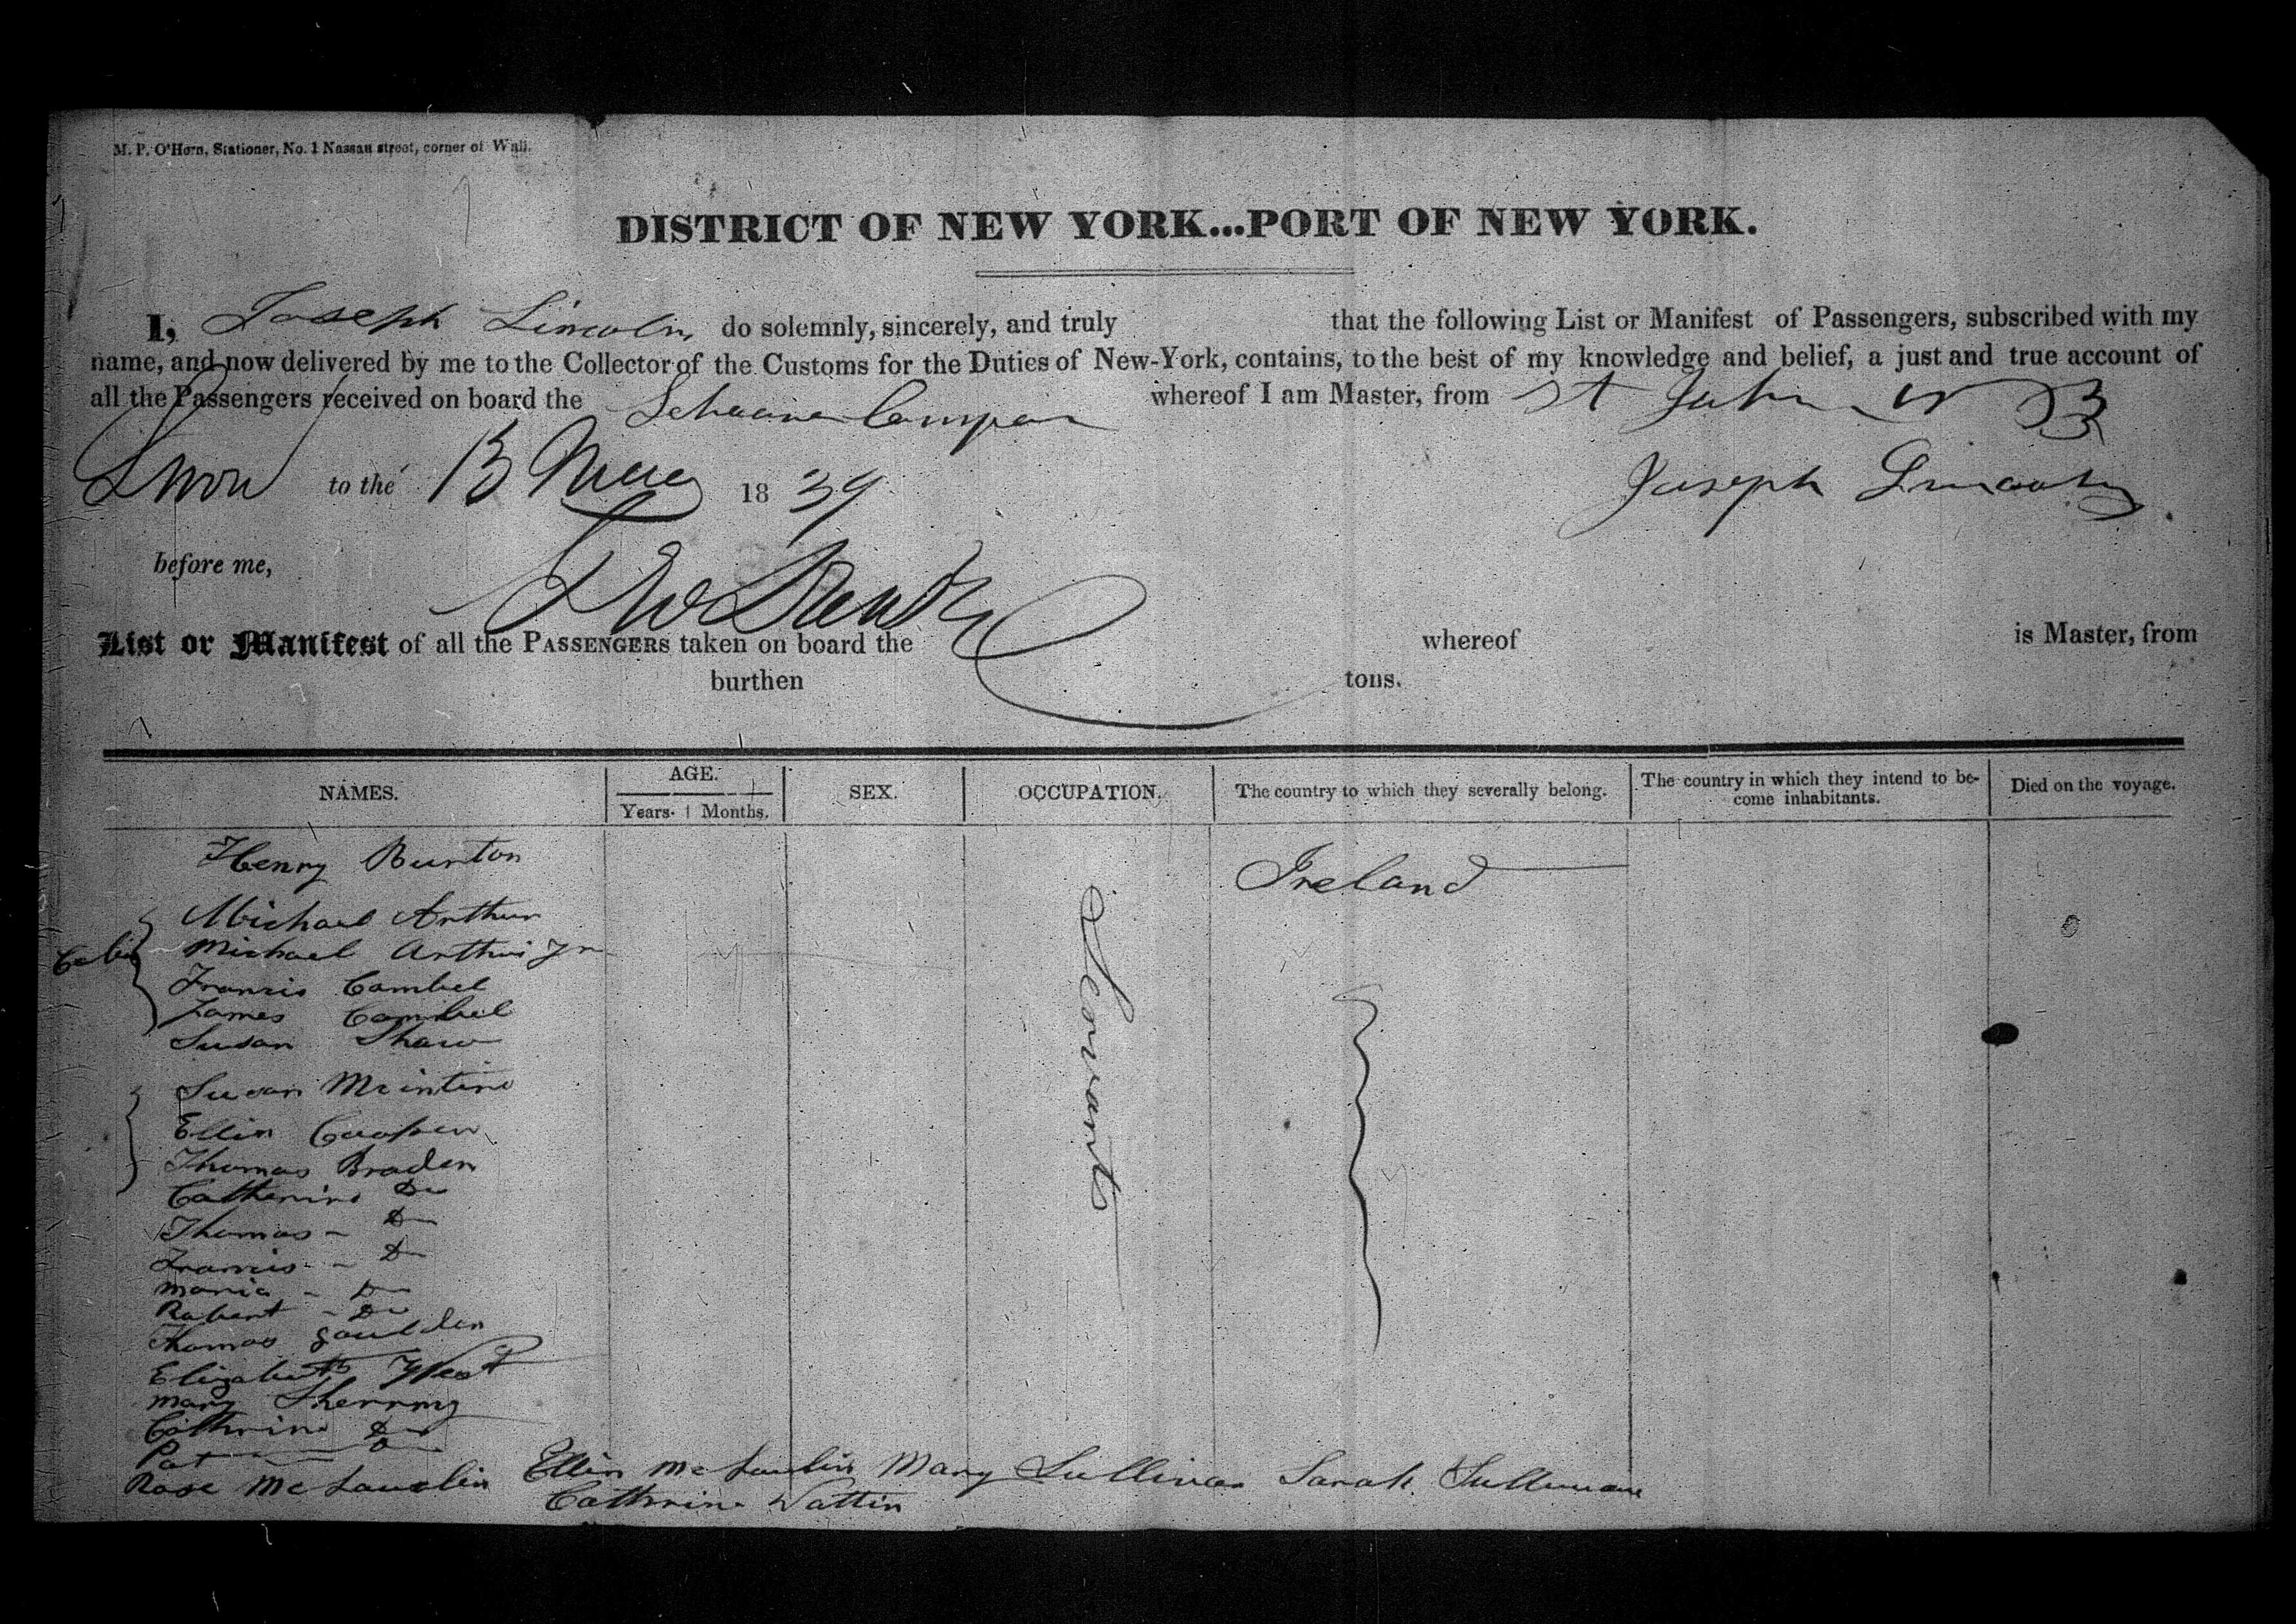 M. P. O'Horn, Stationer, No. 1 Nassau street, corner of Wall.
DISTRICT OF NEW YORK...PORT OF NEW YORK.
I, Joseph Lincoln do solemnly, sincerely, and truly that the following List or Manifest of Passengers, subscribed with my
name, and now delivered by me to the Collector of the Customs for the Duties of New-York, contains, to the best of my knowledge and belief, a just and true account of
all the Passengers received on board the Schooner whereof I am Master, from St John N B
to the 13 1839 Joseph Lincoln
before me,
List or Manifest of all the PASSENGERS taken on board the whereof is Master, from
burthen tons.
NAMES. AGE. SEX. OCCUPATION. The country to which they severally belong. The country in which they intend to be- Died on the voyage.
Years. Months. come inhabitants.
Henry Burton Ireland
Michael Arthur
Michael Arthur Jr
Francis Cambel
James Cambel
Susan Shaw
Servants
Susan McIntire
Ellin Cooper
Thomas Braden
Catherine Do
Thomas - Do
Francis - Do
Maria - Do
Robert - Do
Thomas Goulden
Elizabeth West
Mary Sherring
Cathrine Do
Pat Do
Rose McLauclin Ellin McLaulin Mary Sullivan Sarah Sullivan
Cathrine Wattin